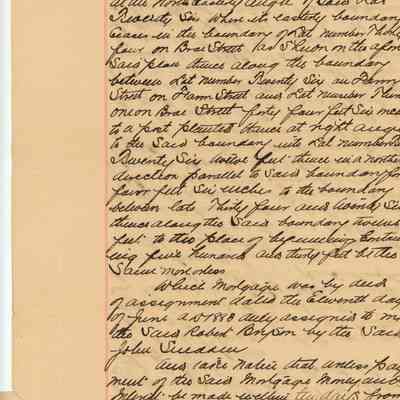 at the North easterly angle of said Lot
Twenty Six where its easterly boundary
ceases in the boundary of Lot number Thirty
four on Brae Street as shown on the afore
said plan thence along the boundary
between Lot number Twenty Six on Fann
Street on Fann Street and Lot number Thirty
one on Brae Street forty four feet Six inches
to a post planted thence at right angles
to the Said boundary into Lot number
Twenty Six twelve feet thence in a northerly
direction parallel to Said boundary forty
four feet Six inches to the boundary
between lots Thirty four and twenty Six
thence along the Said boundary twelve
feet to the place of beginning Contain
ing five hundred and thirty feet be the
Same more or less
Which Mortgage was by deed
of assignment dated the Eleventh day
of June A D 1888 duly assigned to me
the Said Robert Bryson by the Said
John
And take notice that unless pay
ment of the Said Mortgage Money and
Interest be made within days from